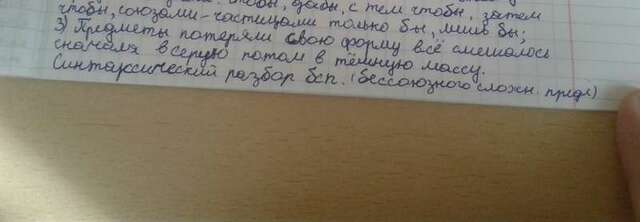 чтобы, дабы, с тем чтобы, затем
чтобы, союзами-частицами только бы, лишь бы;
3) Предметы потеряли свою форму всё смешалось
сначала в серую потом в тёмную массу.
Синтаксический разбор бсп. (бессоюзного сложн. предл)